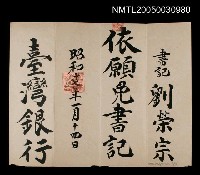 NMTL20050030980
書記 劉榮宗
依願免書記
昭和 年一月十四日
臺灣銀行